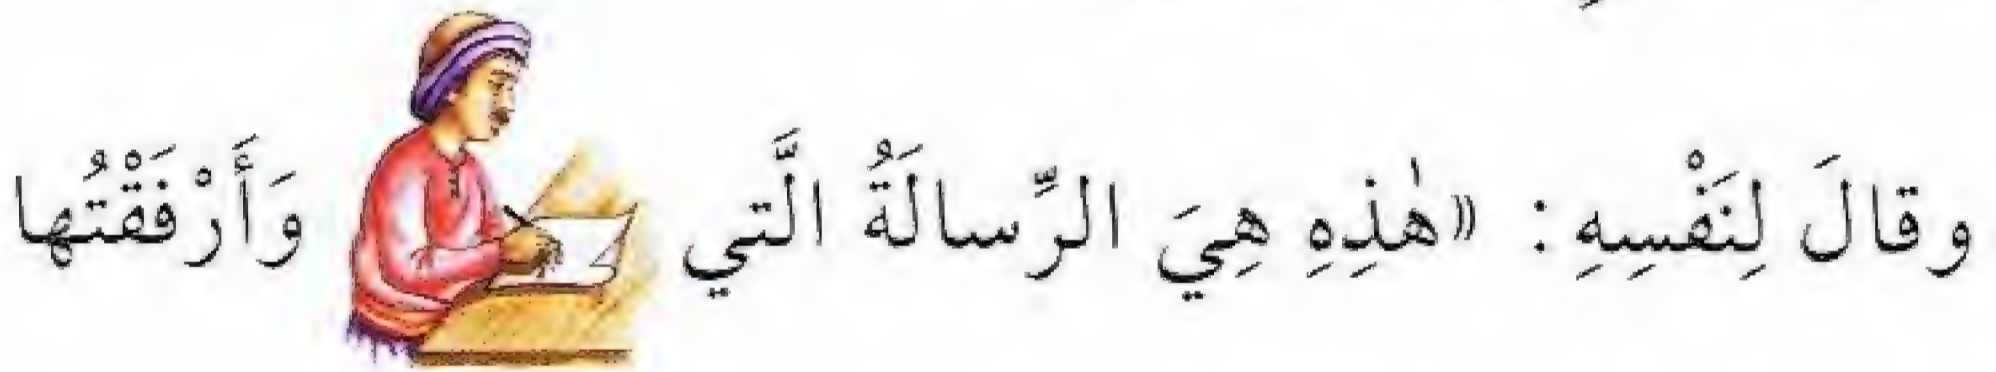 وقالَ لِنَفْسِهِ: «هٰذِهِ هِيَ الرِّسالَةُ الَّتي وَأَرْفَقْتُها